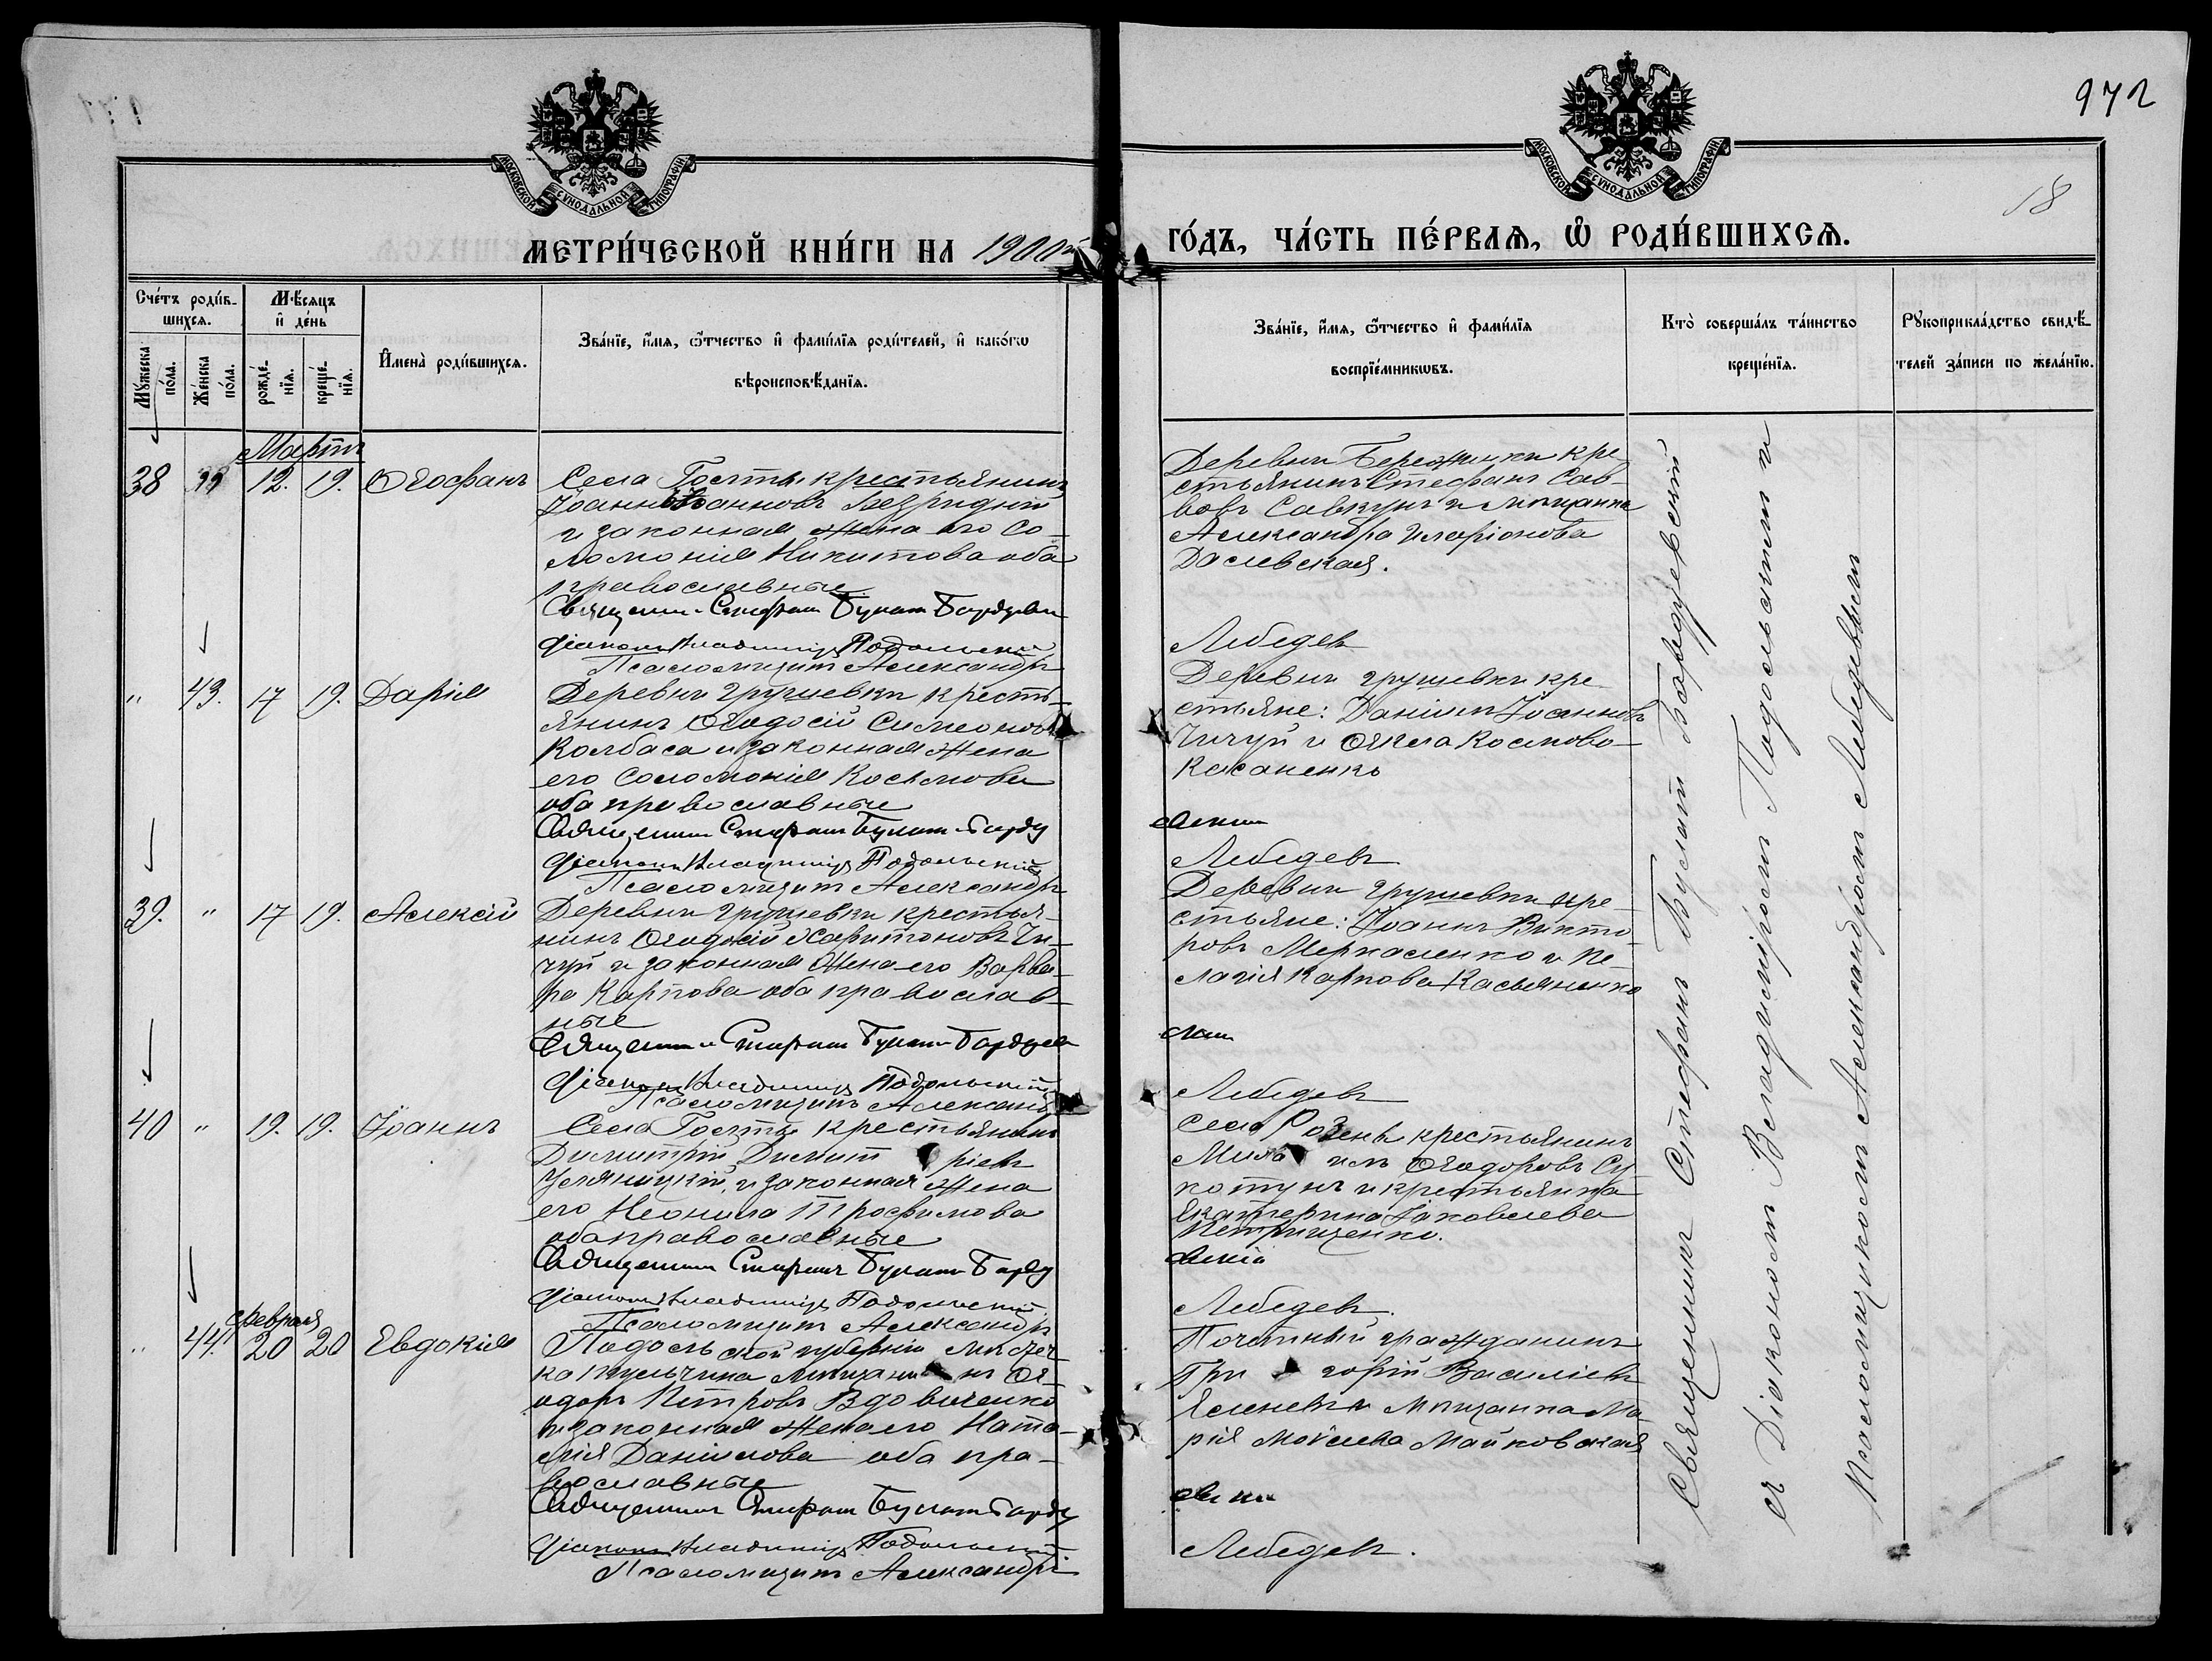 972
18
МОСКОВСКОЙ СУНОДАЛЬНОЙ ТИПОГРАФІИ
МОСКОВСКОЙ СУНОДАЛЬНОЙ ТИПОГРАФІИ
МЕТРИ́ЧЕСКОЙ КНИ́ГИ НА 1900й
ГО́ДЪ, ЧА́СТЬ ПЕ́РВАѦ, Ѽ РОДИ́ВШИХСѦ.
Сче́тъ роди́в-
шихсѧ.
Мꙋ́жеска
по́ла.
Же́нска
по́ла.
Мѣ́сѧцъ
и҆ де́нь
рожде́-
нїѧ.
креще́-
нїѧ.
И҆мена̀ роди́вшихсѧ.
Зва́нїе, и҆́мѧ, ѻ҆́тчество и҆ фами́лїѧ роди́телей, и҆ како́гѡ
вѣроисповѣ́данїѧ.
Зва́нїе, и҆́мѧ, ѻ҆́тчество и҆ фами́лїѧ
воспрїе́мникѡвъ.
Кто̀ соверша́лъ та́инство
креще́нїѧ.
Рꙋкоприкла́дство свидѣ́-
телей за́писи по жела́нїю.
Мартъ
38 " 12. 19. Ѳеофанъ
Села Гостры крестьянинъ
Іоаннъ Іоанновъ Безридній
и законная жена его Со-
ломонія Никитова оба
православные.
Священникъ Стефанъ Булатъ-Бардзевскій
Діаконъ Владиміръ Подольскій
Псаломщикъ Александръ
Деревни Бережинки кре
стьянинъ Стефанъ Сав-
вовъ Савкунъ и мѣщанка
Александра Иларіонова
Далевская.
Лебедевъ
" 43. 17 19. Дарія
Деревни Грушевки кресть-
янинъ Ѳеодосій Симеоновъ
Колбаса и законная жена
его Соломонія Косьмова
оба православные
Священникъ Стефанъ Булатъ-Бардзе
Діаконъ Владиміръ Подольскій
Псаломщикъ Александръ
Деревни Грушевки кре
стьяне: Даніилъ Іоанновъ
Чичуй и Ѳекла Космова
Касаненко
вскій
Лебедевъ
39. " 17 19. Алексій
Деревни Грушевки крестья-
нинъ Ѳеодосій Харитоновъ Чи-
чуй и законная жена его Варва-
ра Карпова оба православ-
ные
Священникъ Стефанъ Булатъ-Бардзев
Діаконъ Владиміръ Подольскій
Псаломщикъ Александръ
Деревни Грушевки кре-
стьяне: Іоаннъ Викто-
ровъ Меркаленко и Пе-
лагія Карпова Касьяненко
скій
Лебедевъ
40 " 19. 19. Іоаннъ
Села Гостры крестьянинъ
Димитрій Димитріевъ
Уляницкій, и законная жена
его Неонила Трофимова
оба православные
Священникъ Стефанъ Булатъ-Бардзе
Діаконъ Владиміръ Подольскій
Псаломщикъ Александръ
Села крестьянинъ
Ѳеодоровъ Су-
котунъ и крестьянка
Екатерина Іаковлева
Петрищенко.
вскій
Лебедевъ.
февраля
" 44. 20 20 Евдокія
Подольской губерніи мѣстеч-
ка Тульчина мѣщанинъ Ѳе-
одоръ Петровъ Вдовиченко
и законная жена его Ната-
лія Даніилова оба пра-
вославные
Священникъ Стефанъ Булатъ-Бардзе
Діаконъ Владиміръ Подольскій.
Псаломщикъ Александръ
Почетный гражданинъ
Григорій Василіевъ
и мѣщанка Ма
рія Моѵсеева Майковская
вскій
Лебедевъ.
Священникъ Стефанъ Булатъ Бардзевскій
съ Діакономъ Владиміромъ Подольскимъ и
Псаломщикомъ Александромъ Лебедевымъ